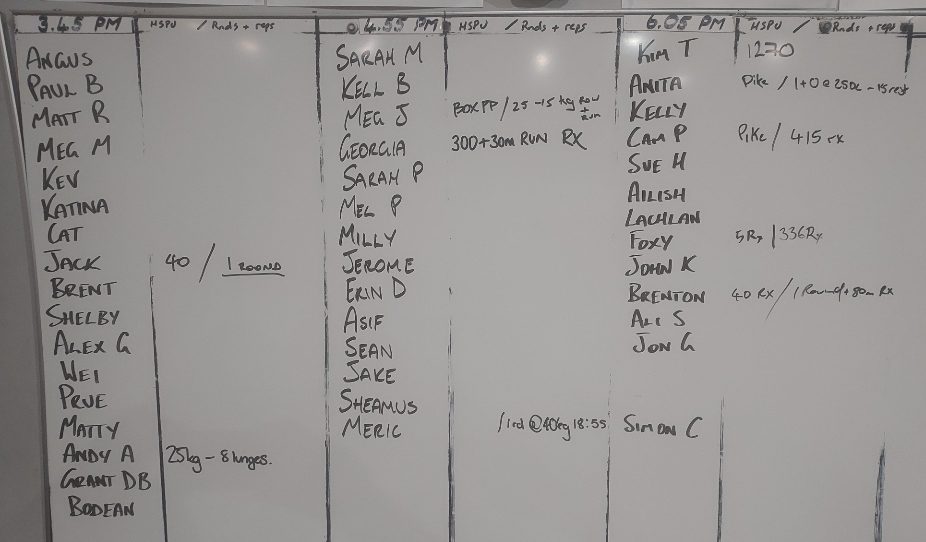 3.45 PM HSPU / Rnds + reps
ANGUS
PAUL B
MATT R
MEG M
KEV
KATINA
CAT
JACK 40 / 1 ROUND
BRENT
SHELBY
ALEX G
WEI
PRUE
MATTY
ANDY A 25kg - 8 lunges.
GRANT DB
BODEAN
4.55 PM HSPU / Rnds + reps
SARAH M
KELL B
MEG J BOX PP / 25 - 15kg Row + Run
GEORGIA 300+30m RUN RX
SARAH P
MEL P
MILLY
JEROME
ERIN D
ASIF
SEAN
JAKE
SHEAMUS
MERIC / 1rd @40kg 18:55
6.05 PM HSPU / Rnds + reps
KIM T 1270
ANITA Pike / 1+0 @ 25 - 15 rest
KELLY
CAM P Pike / 415 rx
SUE H
AILISH
LACHLAN
FOXY 5Rx / 336Rx
JOHN K
BRENTON 40 RX / 1 Round + 80m RX
ALI S
JON G
SIMON C